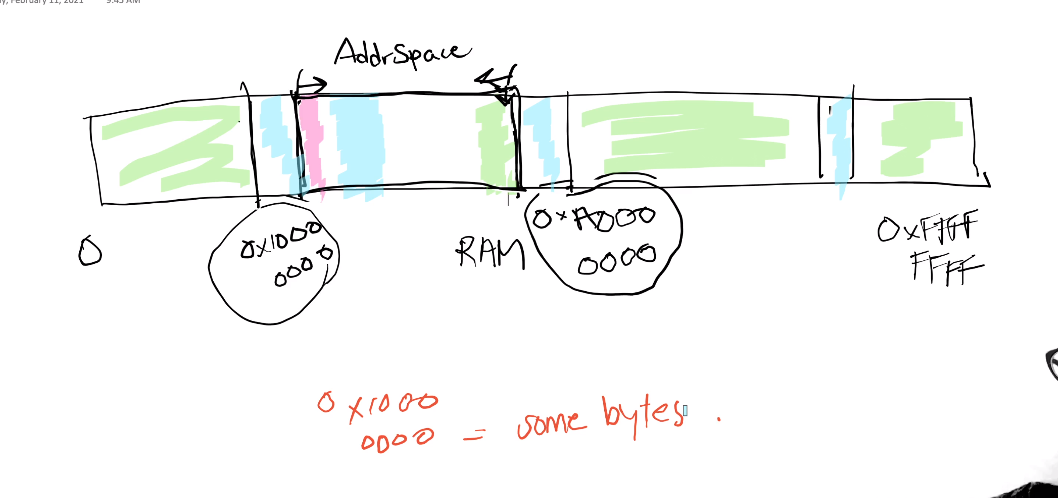 February 11, 2021 9:45 AM
AddrSpace
0
0x1000
0000
RAM
0xA000
0000
0xFFFF
FFFF
0x1000
0000 = some bytes.